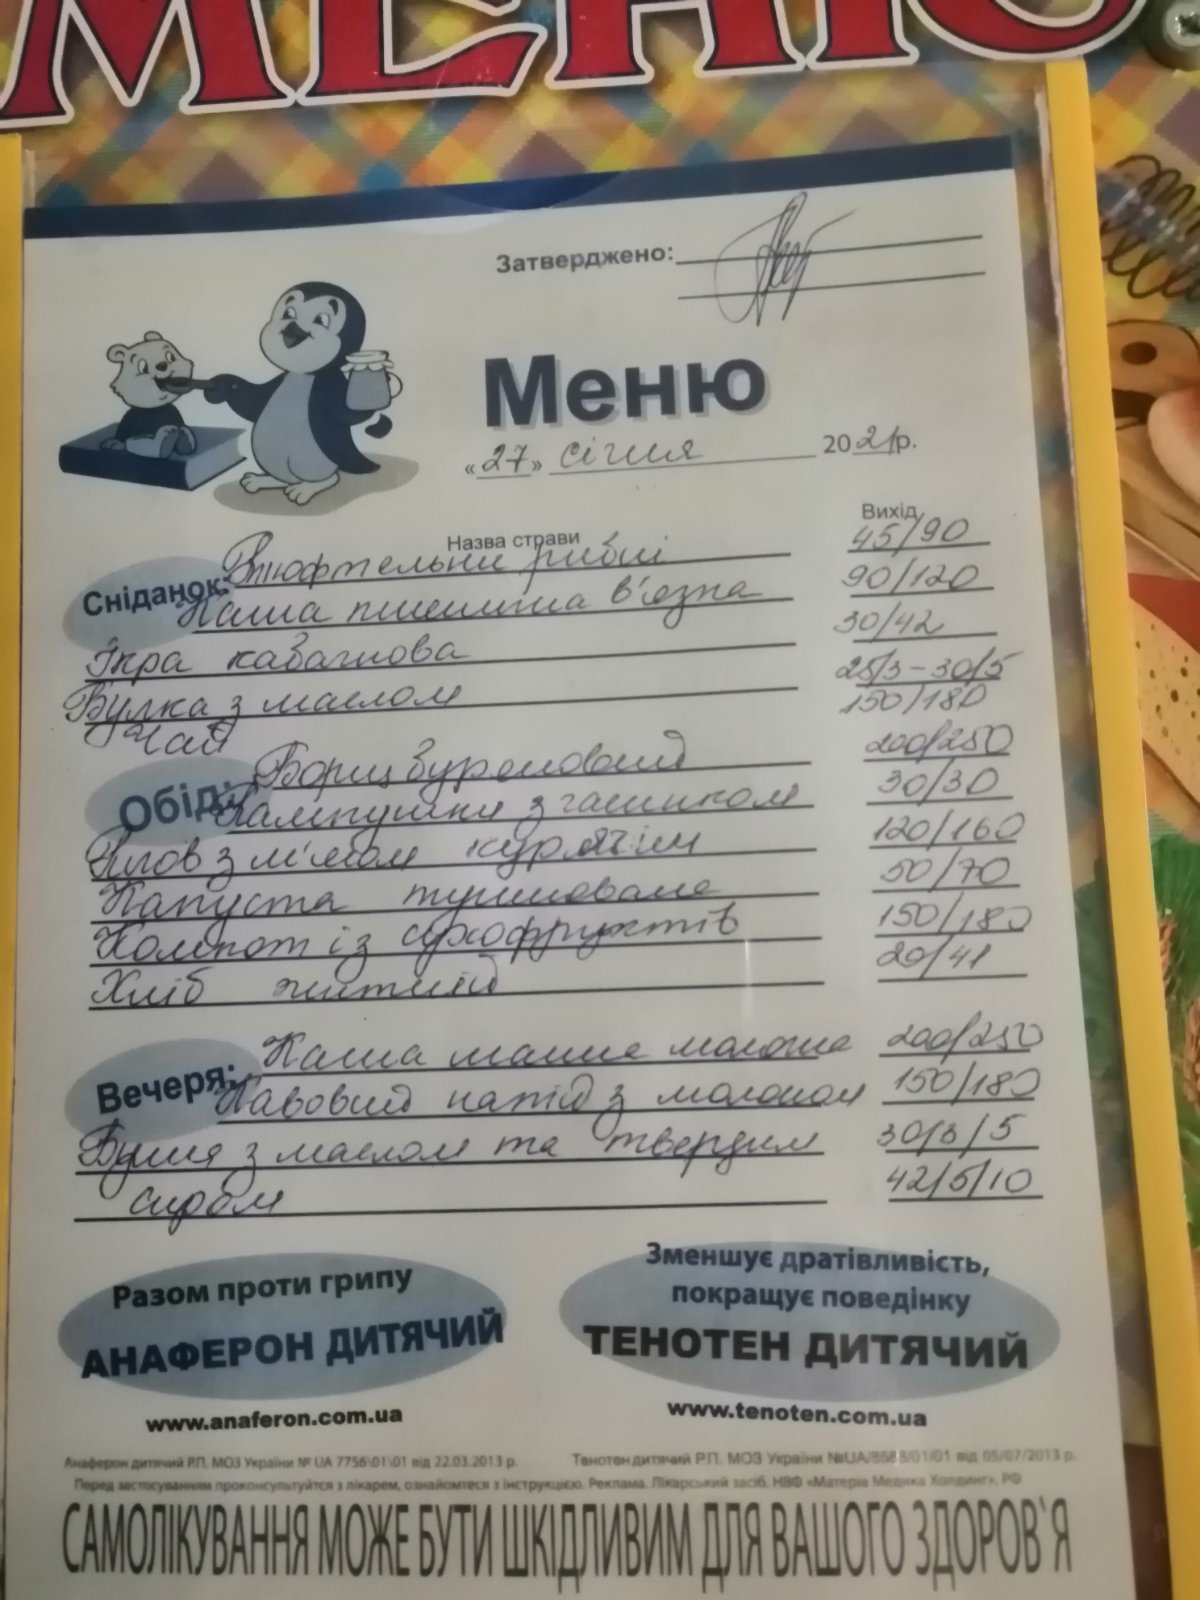 МЕНЮ
Затверджено:
Меню
«27» січня 2021р.
Назва страви Вихід
Сніданок: Фтюфтельки рибні 45/90
Каша пшенична в'язка 90/120
Ікра кабачкова 30/42
Булка з маслом 25/3-30/5
Чай 150/180
Обід: Борщ буряковий 200/250
Пампушки з часником 30/30
Плов з м'ясом курячим 120/160
Капуста тушкована 50/70
Компот із сухофруктів 150/180
Хліб житній 20/41
Вечеря: Каша манна молочна 200/250
Кавовий напій з молоком 150/180
Булка з маслом та твердим 30/3/5
сиром 42/5/10
Разом проти грипу
АНАФЕРОН ДИТЯЧИЙ
www.anaferon.com.ua
Зменшує дратівливість,
покращує поведінку
ТЕНОТЕН ДИТЯЧИЙ
www.tenoten.com.ua
Анаферон дитячий Р.П. МОЗ України № UA 7756\01\01 від 22.03.2013 р. Тенотен дитячий Р.П. МОЗ України №UA/8588/01/01 від 05/07/2013 р.
Перед застосуванням проконсультуйтся з лікарем, ознайомтеся з Інструкцією. Реклама. Лікарський засіб. НВФ «Матеріа Медика Холдинг», РФ
САМОЛІКУВАННЯ МОЖЕ БУТИ ШКІДЛИВИМ ДЛЯ ВАШОГО ЗДОРОВ`Я